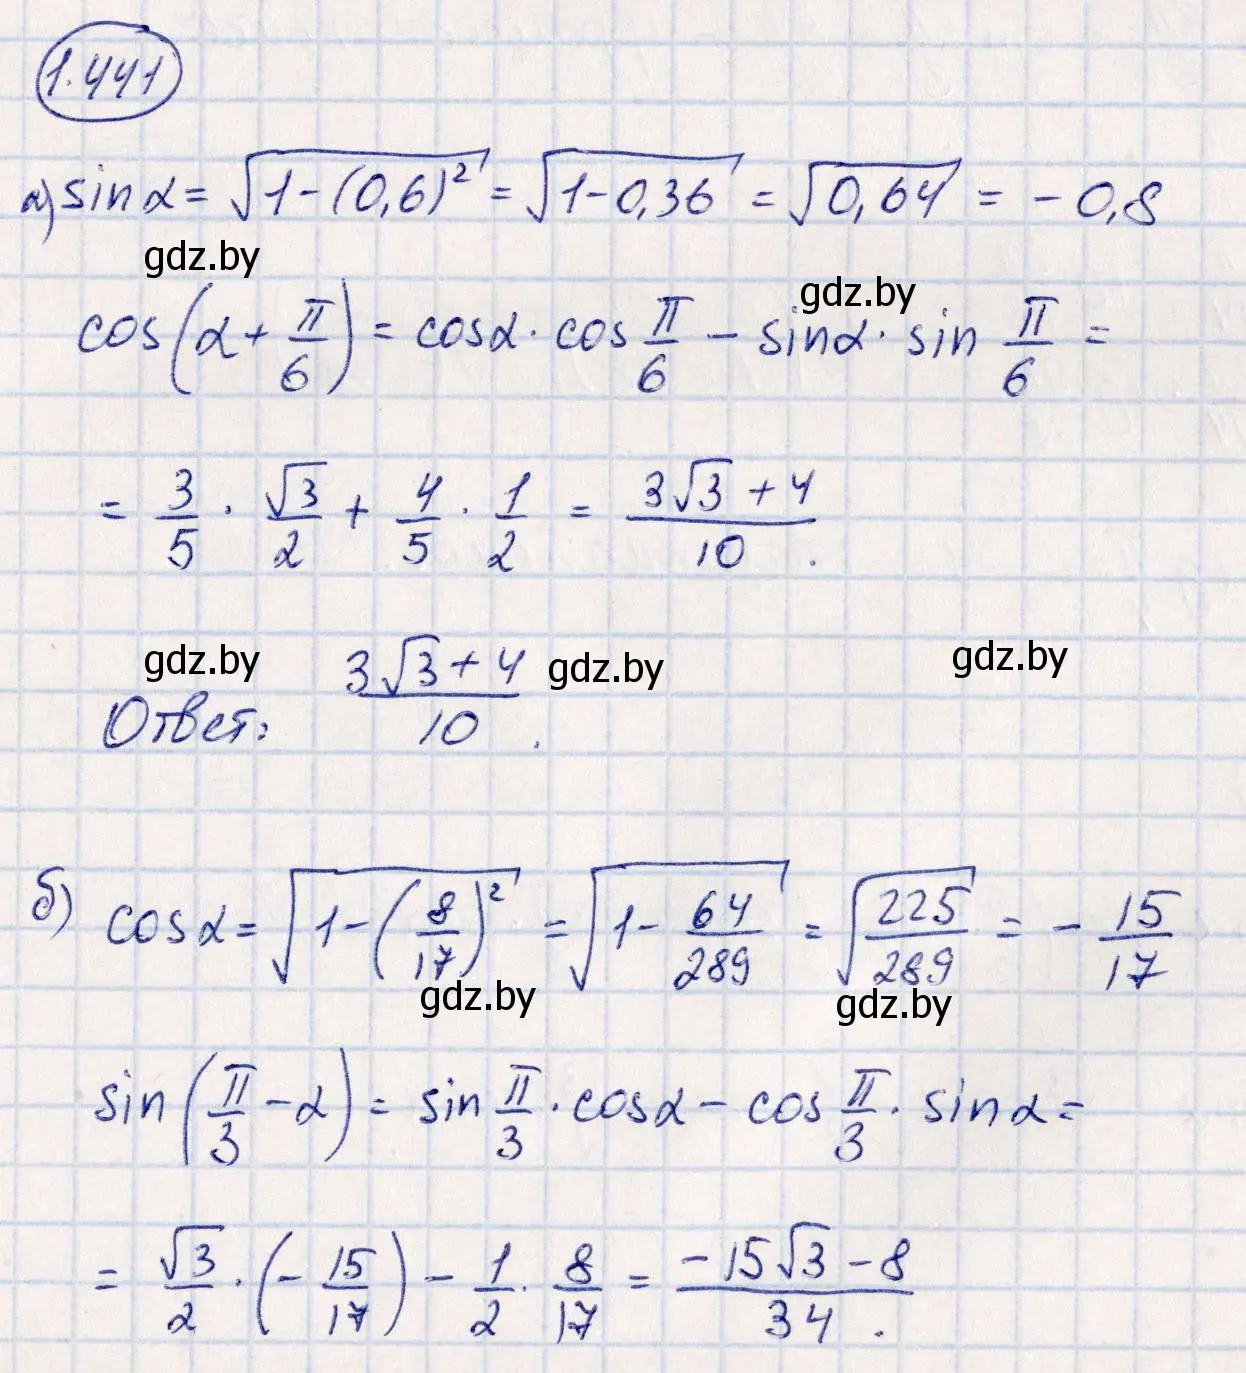 1.441
а) sin α = √(1-(0,6)²) = √(1-0,36) = √(0,64) = -0,8
gdz.by
gdz.by
cos(α + π/6) = cos α · cos π/6 - sin α · sin π/6 =
= 3/5 · √3/2 + 4/5 · 1/2 = (3√3 + 4)/10 .
gdz.by gdz.by gdz.by
Ответ: (3√3 + 4)/10 .
б) cos α = √(1-(8/17)²) = √(1 - 64/289) = √(225/289) = - 15/17
gdz.by gdz.by
sin(π/3 - α) = sin π/3 · cos α - cos π/3 · sin α =
= √3/2 · (- 15/17) - 1/2 · 8/17 = (-15√3 - 8)/34 .